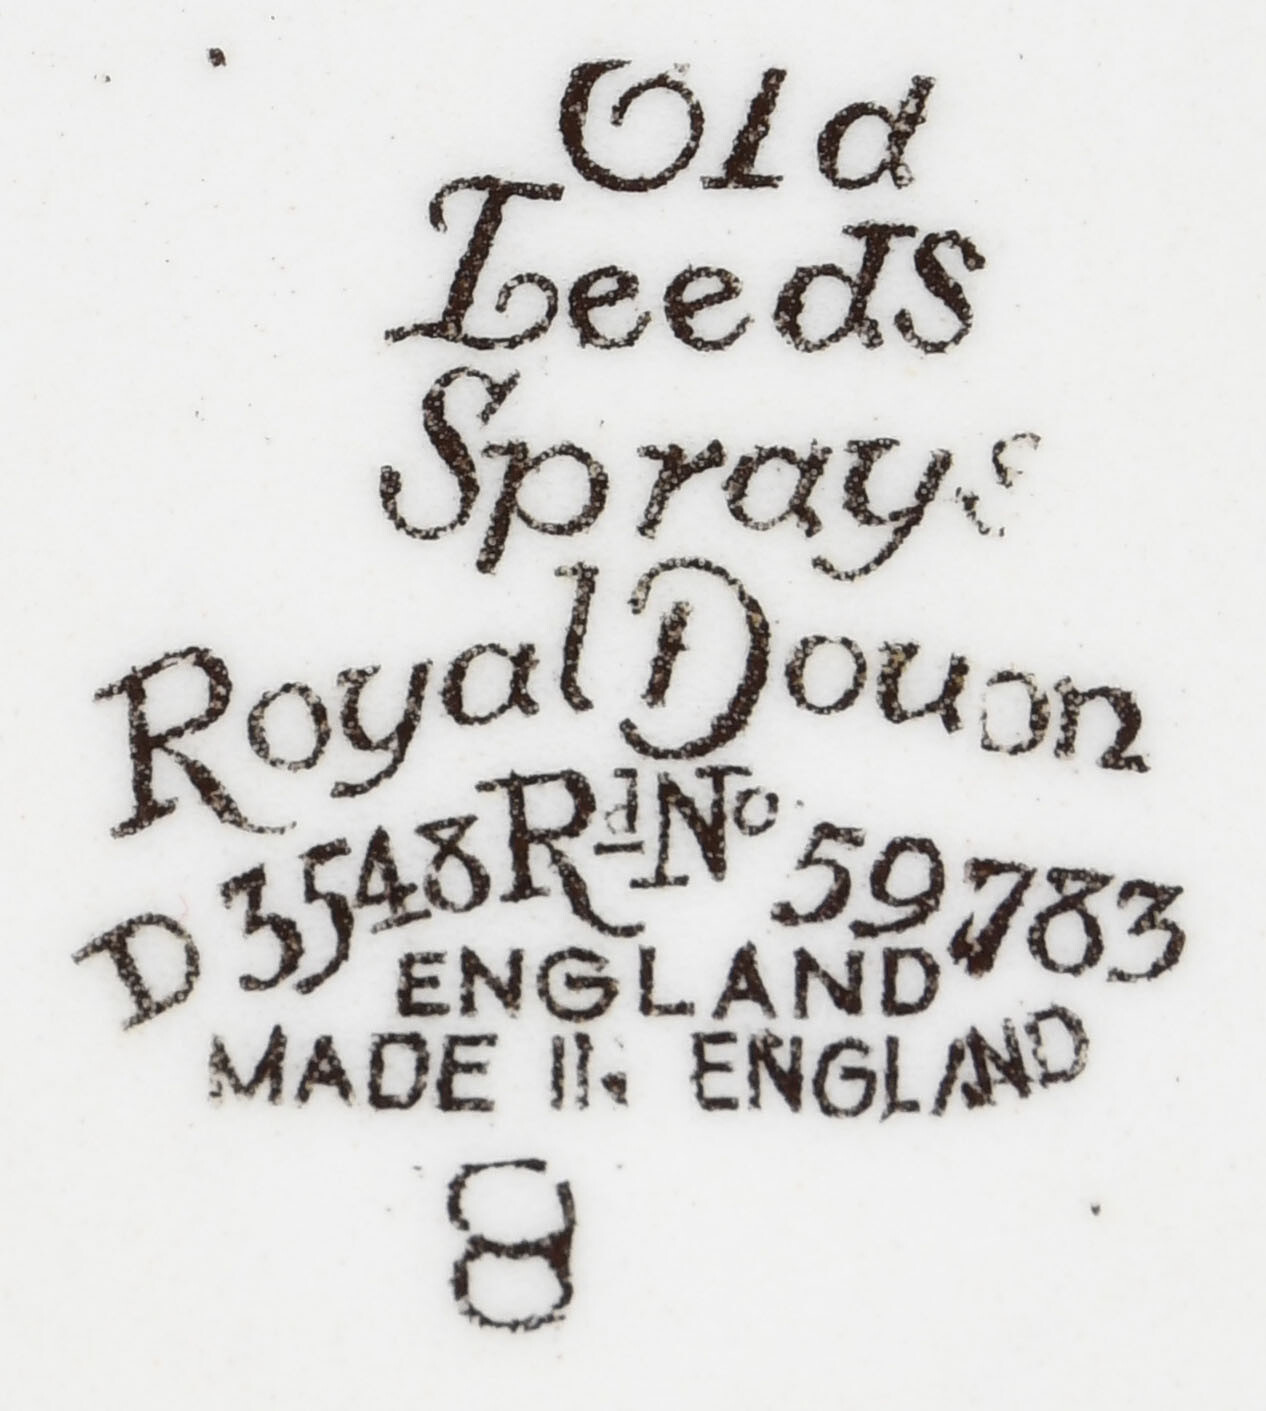 Old
Leeds
Sprays
Royal Douon
D 3548 Rd No 59783
ENGLAND
MADE IN ENGLAND
8